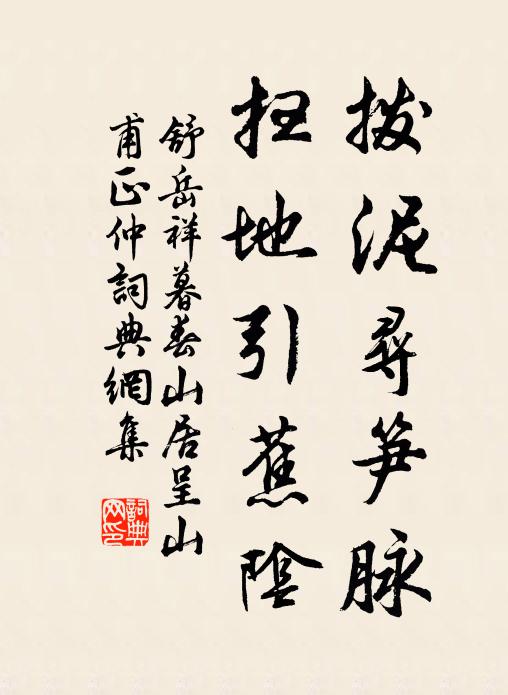 拨泥尋笋脉
扫地引蕉陰
舒岳祥暮春山居呈山
甫正仲詞典網集
詞典
网印